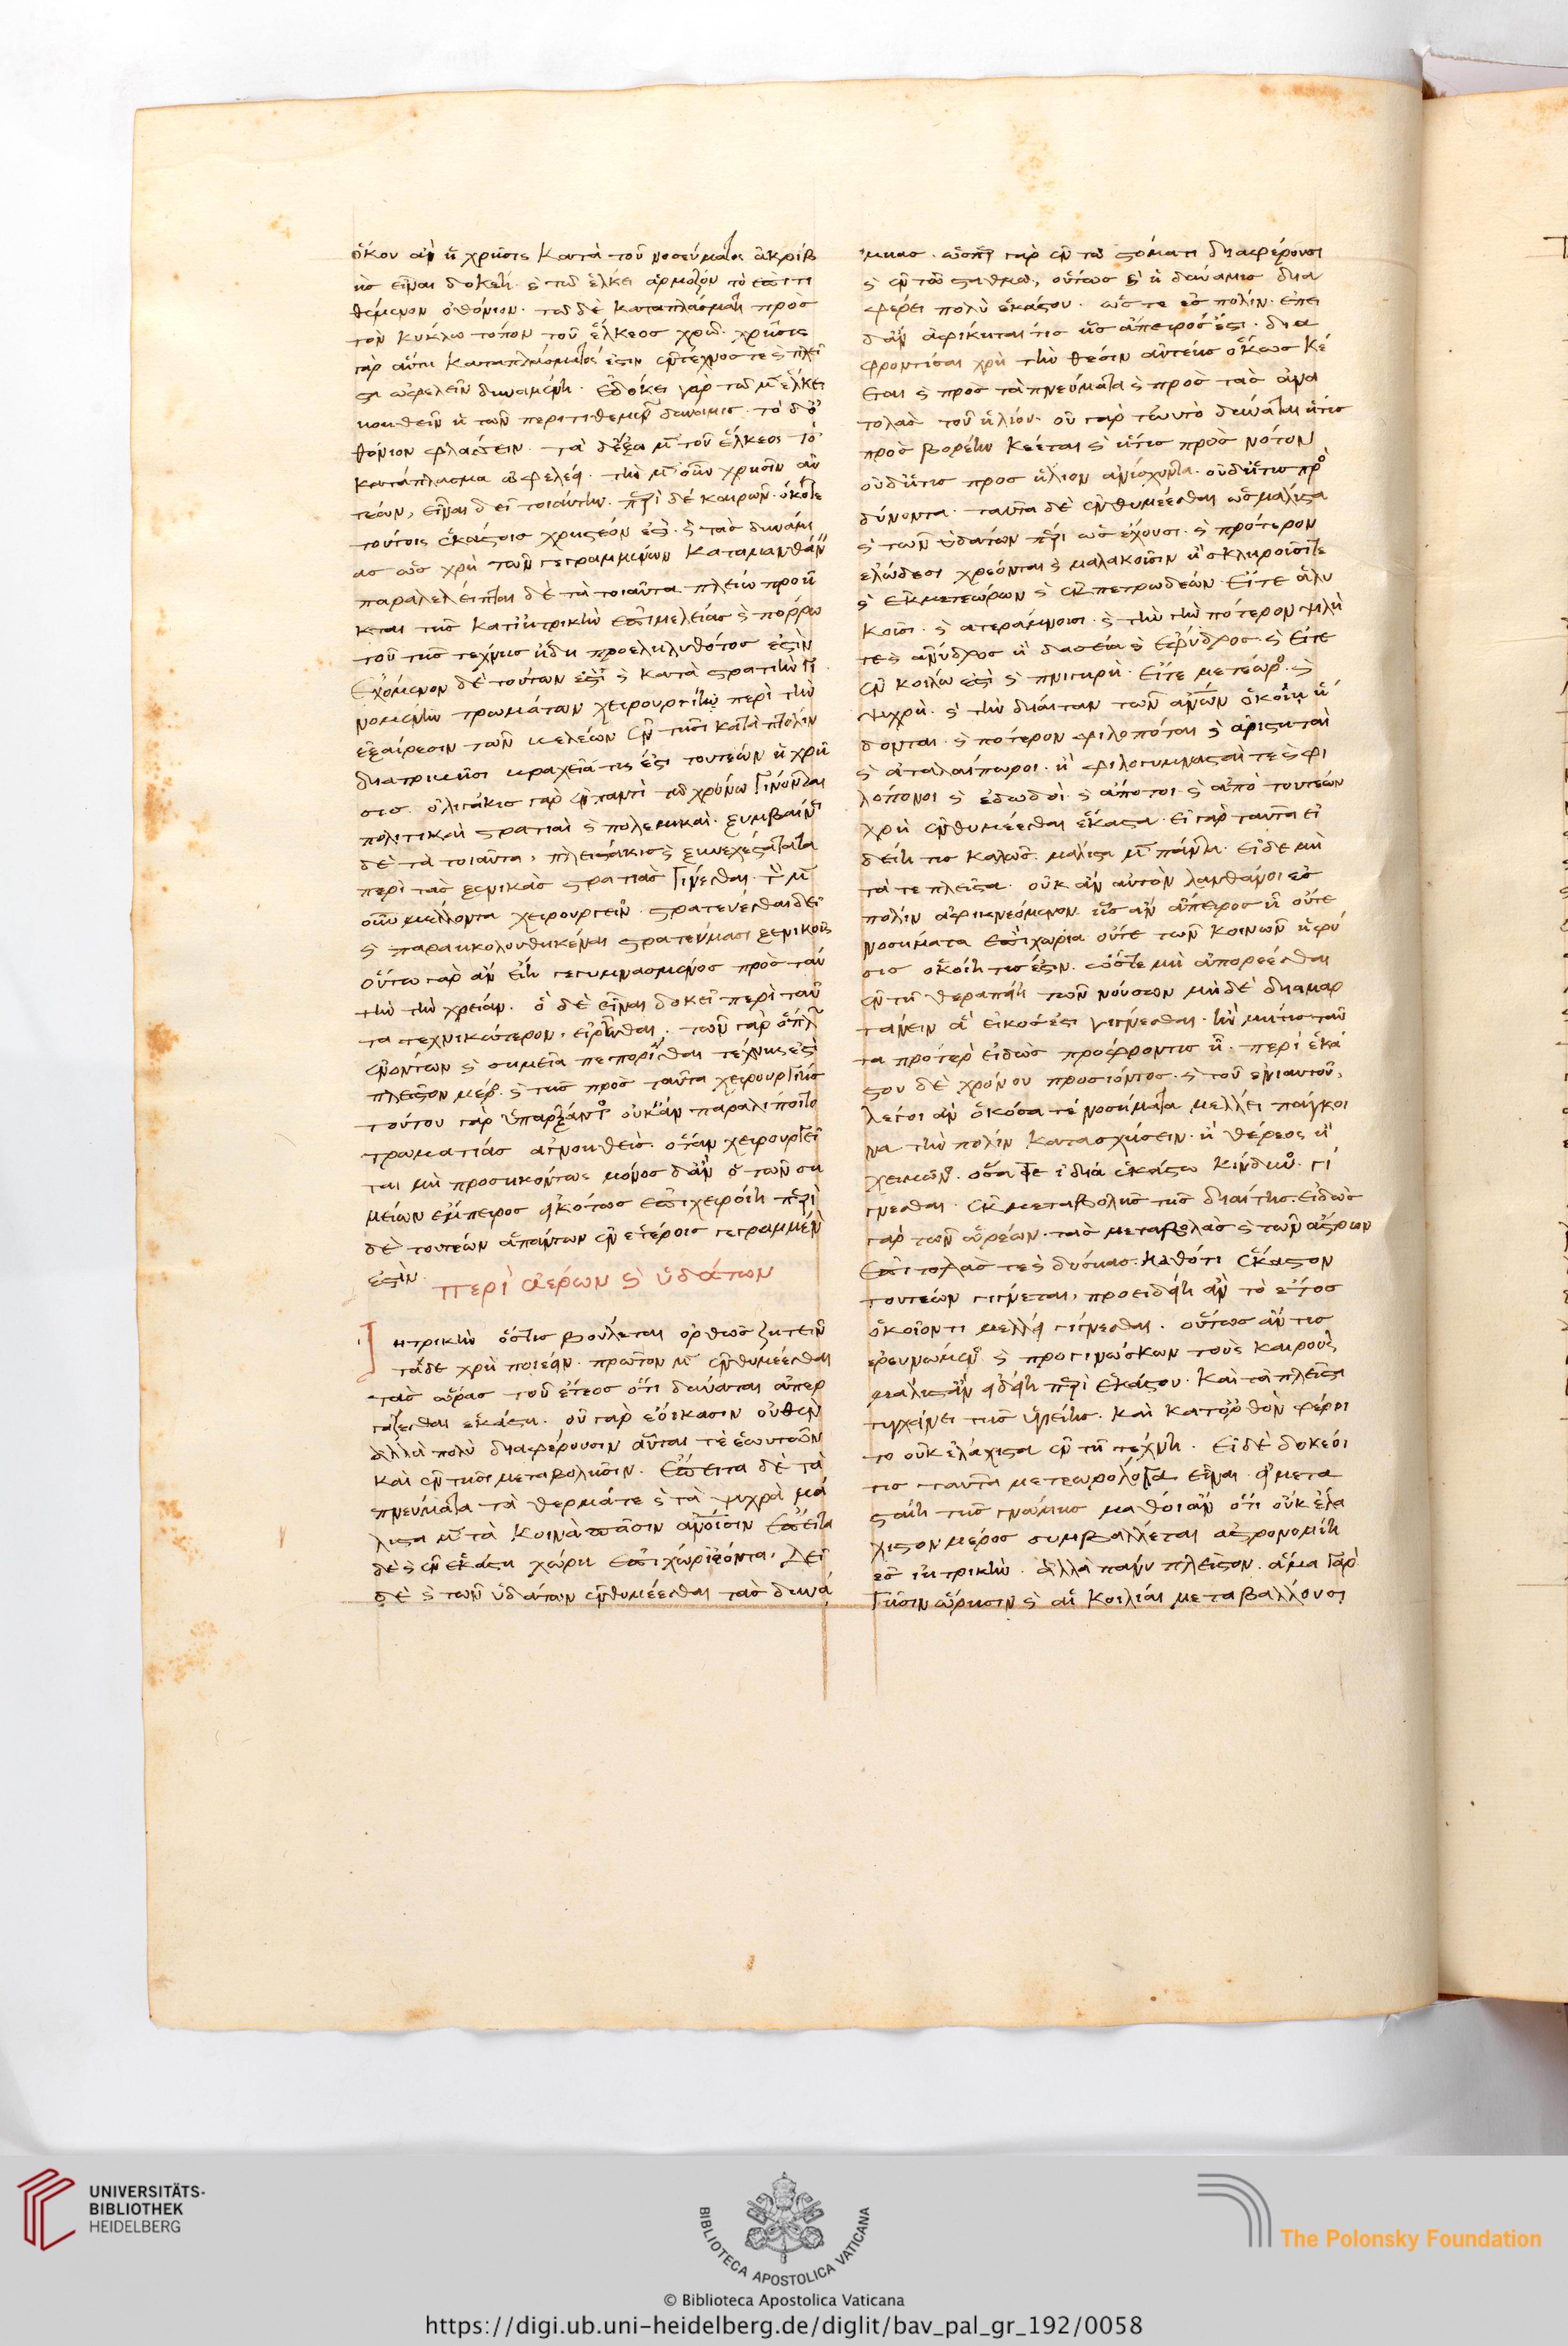 ὅκου ἂν ἡ χρῆσις κατὰ τοῦ νοσεύματος ἀκριβ
ὴς εἶναι δοκέη. ϗ τῷ ἕλκει ἁρμόζον τὸ ἐπιτι
θέμενον ὀθόνιον. τῷ δὲ καταπλάσματι πρὸς
τὸν κύκλω τόπον τοῦ ἕλκεος χρῶ. χρῆσις
γὰρ αὕτη καταπλάσματός ἐστιν ἐντέχνος τε ϗ πλεῖ
στα ὠφελεῖν δυναμένη. ἐδόκει γὰρ τῷ μὲν ἕλκει
βοηθεῖν ἡ τῶν περιτιθεμένων δύναμις. τὸ δ' ὀ
θόνιον φλάσσειν. τὰ δ' ἔξω μὲν τοῦ ἕλκεος τὸ
κατάπλασμα ὠφελέει. τὴν μὲν οὖν χρῆσιν αὐ
τέων, εἶναι δεῖ τοιαύτην. περὶ δὲ καιρῶν ὁκότε
τούτοις ἑκάστοις χρηστέον ἐστὶ. ϗ τὰς δυνάμι
ας ὡς χρὴ τῶν γεγραμμένων καταμανθάν
παραλέλειπται δὲ τὰ τοιαῦτα. πλείω προή
κται τῆς κατ' ἰητρικὴν ἐπιμελείας ϗ πόρρω
τοῦ τῆς τέχνης ἤδη προεληλυθότος ἐστὶν
ἐχόμενον δὲ τούτων ἐστὶ ϗ κατὰ στρατιὴν γι
νομένην τρωμάτων χειρουργίην περὶ τὴν
ἐξαίρεσιν τῶν βελέων ἐν τῇσι κατὰ πόλιν
διατριβῇσι βραχεῖά τίς ἐστι τουτέων ἡ χρῆ
σις. ὀλιγάκις γὰρ ἐν παντὶ τῷ χρόνω γίνονται
πολιτικαὶ στρατιαὶ ϗ πολεμικαὶ. ξυμβαίνει
δὲ τὰ τοιαῦτα, πλειστάκις ϗ ξυνεχέστατα
περὶ τὰς ξενικὰς στρατιὰς γίνεσθαι. τὸν μὲν
οὖν μέλλοντα χειρουργεῖν. στρατεύεσθαι δεῖ
ϗ παρηκολουθηκέναι στρατεύμασι ξενικοῖς
οὕτω γὰρ ἂν εἴη γεγυμνασμένος πρὸς ταύ
την τὴν χρείαν. ὃ δὲ εἶναι δοκεῖ περὶ ταῦ
τα τεχνικώτερον, εἰρῆσθαι. τῶν γὰρ ὅπλων
ἐνόντων ϗ σημεῖα πεπορίσθαι τέχνης ἐστὶ
πλεῖστον μέρος. ϗ τῆς πρὸς ταῦτα χειρουργίης
τούτου γὰρ ὑπάρξαντος οὐκ ἂν παραλίποιτο
τρωματίας ἀγνοηθεὶς. ὅταν χειρουργεῖ
ται μὴ προσηκόντως μόνος δ' ἂν ὁ τῶν ση
μείων ἔμπειρος εἰκότως ἐπιχειροίη περὶ
δὲ τουτέων ἁπάντων ἐν ἑτέροις γεγραμμέν
ἐστὶν.
περὶ ἀέρων ϗ ὑδάτων
Ἰητρικὴν ὅστις βούλεται ὀρθῶς ζητεῖν
τάδε χρὴ ποιέειν. πρῶτον μὲν ἐνθυμέεσθαι
τὰς ὥρας τοῦ ἔτεος ὅτι δύναται ἀπερ
γάζεσθαι ἑκάστη. οὐ γὰρ ἐοίκασιν οὐθὲν
ἀλλὰ πολὺ διαφέρουσιν αὗται τὲ ἑωυτῶν
καὶ ἐν τῇσι μεταβολῇσιν. ἔπειτα δὲ τὰ
πνεύματα τὰ θερμά τε ϗ τὰ ψυχρὰ μά
λιστα μὲν τὰ κοινὰ πᾶσιν ἀνοῖσιν ἔπειτα
δὲ ϗ ἐν ἑκάστη χώρη ἐπιχωρίζοντα. Δεῖ
δὲ ϗ τῶν ὑδάτων ἐνθυμέεσθαι τὰς δυνά
μιας. ὥσπερ γὰρ ἐν τῷ στόματι διαφέρουσι
ϗ ἐν τῷ σταθμῷ, οὕτως ϗ ἡ δύναμις δια
φέρει πολὺ ἑκάστου. ὥστε ἐς πόλιν. ἐπει
δὰν ἀφίκηται τὶς ἧς ἄπειρός ἐστι. δια
φροντίσαι χρὴ τὴν θέσιν αὐτέης ὅκως κέ
εται ϗ πρὸς τὰ πνεύματα ϗ πρὸς τὰς ἀνα
τολὰς τοῦ ἡλίου. οὐ γὰρ τὠυτὸ δύναται ἥτις
πρὸς βορέην κέεται ϗ ἥτις πρὸς νότον
οὐδ' ἥτις πρὸς ἥλιον ἀνίσχοντα. οὐδ' ἥτις πρὸς
δύνοντα. ταῦτα δὲ ἐνθυμέεσθαι ὡς μάλιστα
ϗ τῶν ὑδάτων πέρι ὡς ἔχουσι. ϗ πρότερον
ἑλώδεσι χρέονται ϗ μαλακοῖσιν ἢ σκληροῖσίτε
ϗ ἐκ μετεώρων ϗ ἐκ πετρωδέων. Εἴτε ἁλυ
κοῖσι. ϗ ἀτεράμνοισι. ϗ τὴν γῆν πότερον ψιλή
τε ϗ ἄνυδρος ἢ δασεῖα ϗ ἔφυδρος. ϗ εἴτε
ἐν κοίλω ἐστὶ ϗ πνιγηρὴ. Εἴτε μετέωρος. ϗ
ψυχρὴ. ϗ τὴν δίαιταν τῶν ἀνων ὁκοίη ἥ
δονται. ϗ πότερον φιλοπόται ϗ ἀρισηταὶ
ϗ ἀταλαίπωροι. ἢ φιλογυμνασταί τε ϗ φι
λόπονοι ϗ ἐδωδοὶ. ϗ ἄποτοι. ϗ ἀπὸ τουτέων
χρὴ ἐνθυμέεσθαι ἕκαστα. εἰ γὰρ ταῦτα εἰ
δείη τις καλῶς. μάλιστα μὲν πάντα. εἰ δὲ μὴ
τά τε πλεῖστα. οὐκ ἂν αὐτὸν λανθάνοι ἐς
πόλιν ἀφικνεόμενον ἧς ἂν ἄπειρος ἦ οὔτε
νοσήματα ἐπιχώρια οὔτε τῶν κοινῶν ἡ φύ
σις ὁκοίη τίς ἐστιν. ὥστε μὴ ἀπορέεσθαι
ἐν τῇ θεραπείη τῶν νούσων μὴ δὲ διαμαρ
τάνειν ἃ εἰκός ἐστι γίγνεσθαι. ἢν μή τις ταῦ
τα πρότερον εἰδὼς προφροντίση. περὶ ἑκά
στου δὲ χρόνου προσιόντος. ϗ τοῦ ἐνιαυτοῦ,
λέγοι ἂν ὁκόσα τε νοσήματα μέλλει πάγκοι
να τὴν πόλιν κατασχήσειν. ἢ θέρεος ἢ
χειμῶνος. ὅσα τε ἰδία ἑκάστω κίνδυνος. γί
γνεσθαι. ἐκ μεταβολῆς τῆς διαίτης. εἰδὼς
γὰρ τῶν ὡρέων. τὰς μεταβολὰς ϗ τῶν ἄστρων
ἐπιτολάς τε ϗ δύσιας. καθότι ἕκαστον
τουτέων γίγνεται, προειδείη ἂν τὸ ἔτος
ὁκοῖόν τι μέλλει γίγνεσθαι. οὕτως ἄν τις
ἐρευνώμενος ϗ προγινώσκων τοὺς καιροὺς
μάλιστ' ἂν εἰδείη περὶ ἑκάστου. καὶ τὰ πλεῖστα
τυγχάνει τῆς ὑγιείης. καὶ κατ' ὀρθὸν φέροι
το οὐκ ἐλάχιστα ἐν τῇ τέχνη. Εἰ δὲ δοκέοι
τις ταῦτα μετεωρολόγα εἶναι. εἰ μετα
σταίη τῆς γνώμης μάθοι ἂν ὅτι οὐκ ἐλά
χιστον μέρος συμβάλλεται ἀστρονομίη
ἐς ἰητρικὴν. ἀλλὰ πάνυ πλεῖστον. ἅμα γὰρ
τῇσιν ὥρησιν ϗ αἱ κοιλίαι μεταβάλλουσι
UNIVERSITÄTS-
BIBLIOTHEK
HEIDELBERG
BIBLIOTECA APOSTOLICA VATICANA
The Polonsky Foundation
© Biblioteca Apostolica Vaticana
https://digi.ub.uni-heidelberg.de/diglit/bav_pal_gr_192/0058